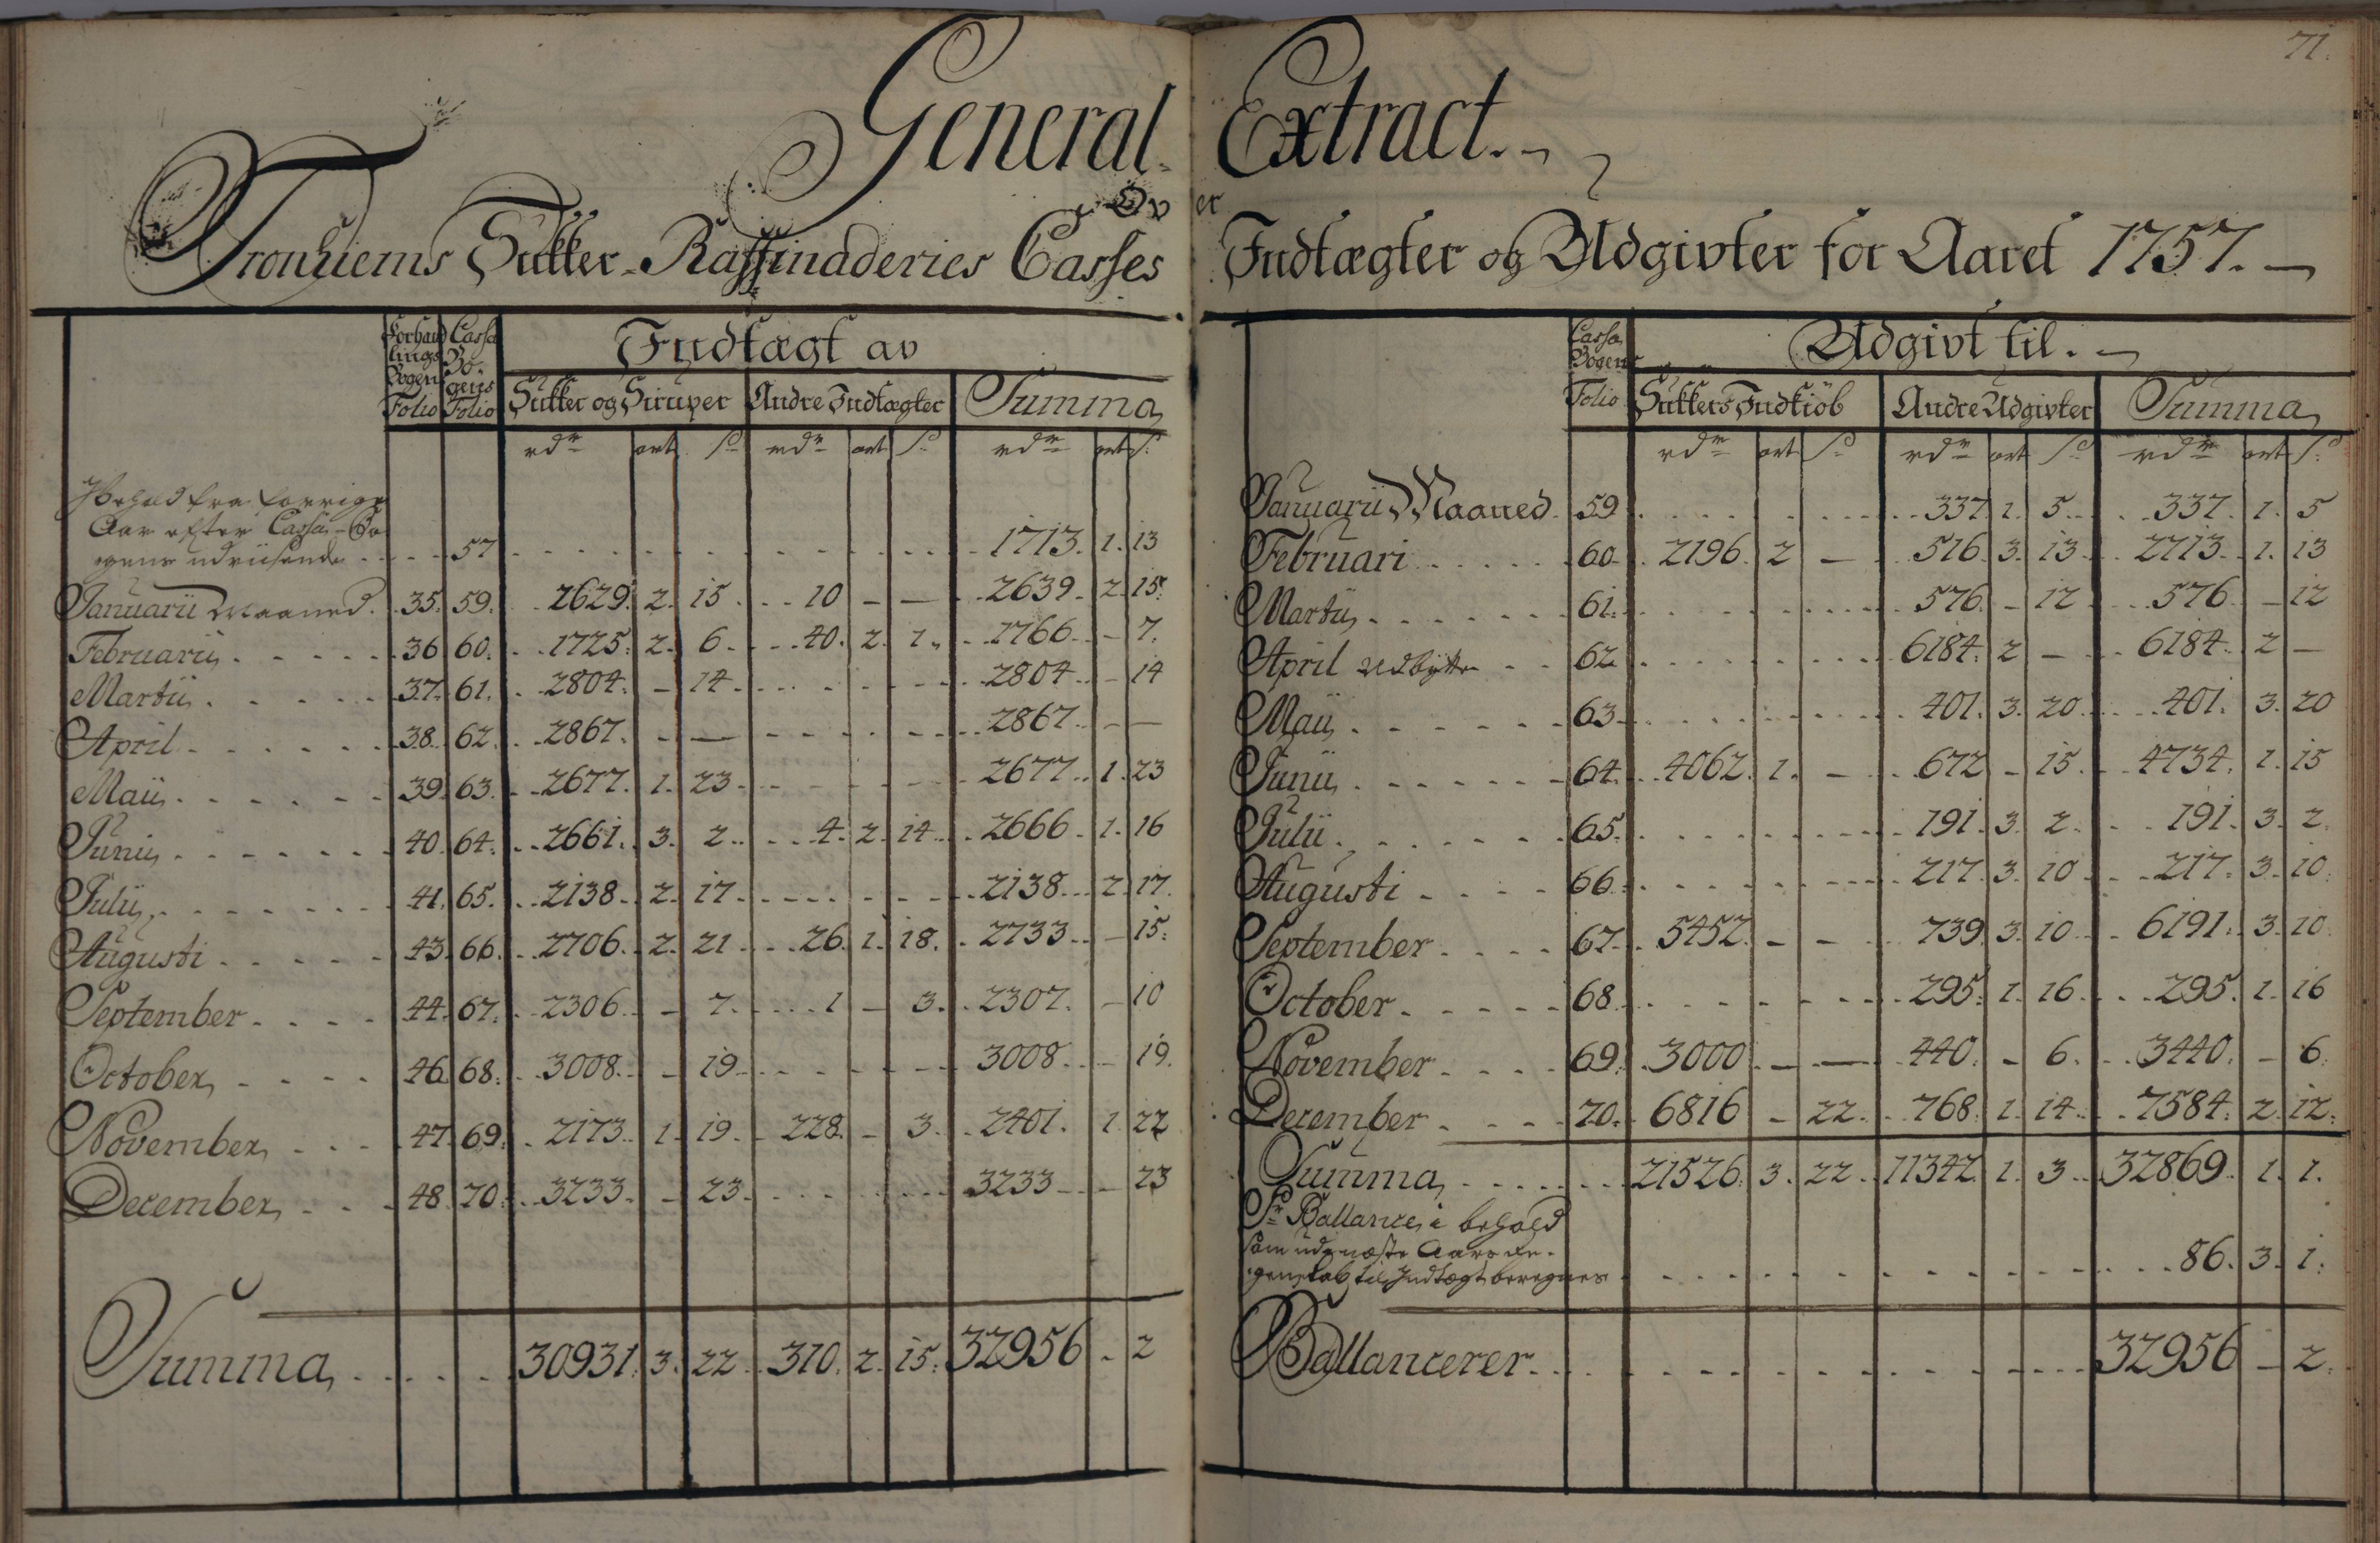 71.
General Extract.
Over
Tronhiems Sukker-Raffinaderies Casses Indtægter og Udgivter for Aaret 1757.
Forhandlings Bogens Folio | Cassa Bogens Folio | Indtægt av
Sukker og Siruper | Andre Indtægter | Summa
rdr ort s | rdr ort s | rdr ort s
Behold fra forrige
Aar efter Cassa-Bo-
gens udviisende . . . 57 . . . 1713. 1. 13
Januarii Maaned. 35. 59. 2629. 2. 15. 10 - - 2639. 2. 15.
Februarii 36 60. 1725. 2. 6. 40. 2. 1. 1766. - 7.
Martii 37. 61. 2804. - 14. 2804. - 14
April 38. 62. 2867. - - 2867. - -
Maii 39. 63. 2677. 1. 23. 2677. 1. 23
Junii 40. 64. 2661. 3. 2. 4. 2. 14. 2666. 1. 16
Julii 41. 65. 2138. 2. 17. 2138. 2. 17.
Augusti 43. 66. 2706. 2. 21. 26. 1. 18. 2733. - 15.
September 44. 67. 2306. - 7. 1 - 3. 2307. - 10
October 46. 68. 3008. - 19. 3008. - 19.
November 47. 69. 2173. 1. 19. 228. - 3. 2401. 1. 22
December 48. 70. 3233. - 23. 3233 - 23
Summa 30931. 3. 22. 310. 2. 15. 32956 - 2
Cassa Bogens Folio | Udgivt til.
Sukkers Indkiöb | Andre Udgivter | Summa
rdr ort s | rdr ort s | rdr ort s
Januarii Maaned. 59. 337. 1. 5. 337. 1. 5
Februari 60. 2196. 2 - 516. 3. 13. 2713. 1. 13
Martii 61. 576. - 12 576 - 12
April Udbytte 62 6184. 2 - 6184. 2 -
Maii 63. 401. 3. 20. 401. 3. 20
Junii 64. 4062. 1. - 672 - 15. 4734. 1. 15
Julii 65. 191. 3. 2. 191. 3. 2.
Augusti 66. 217. 3. 10 217. 3. 10.
September 67. 5452. - - 739. 3. 10. 6191. 3. 10.
October 68. 295. 1. 16. 295. 1. 16
November 69. 3000 - - 440. - 6. 3440. - 6.
December 70. 6816 - 22. 768. 1. 14. 7584. 2. 12.
Summa 21526. 3. 22. 11342. 1. 3. 32869. 1. 1.
Pr Ballance i behold
som udi næste Aars Re-
genskab til Indtægt beregnes 86. 3. 1.
Ballancerer 32956 - 2.